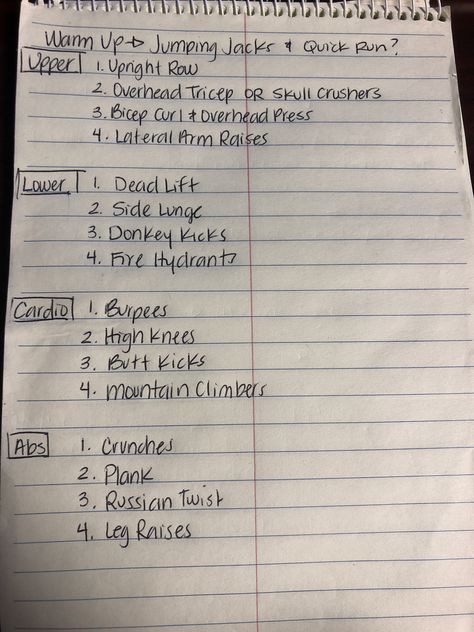 Warm Up → Jumping Jacks & Quick Run?
Upper 1. Upright Row
2. Overhead Tricep OR Skull Crushers
3. Bicep Curl & Overhead Press
4. Lateral Arm Raises
Lower 1. Dead Lift
2. Side Lunge
3. Donkey Kicks
4. Fire Hydrants
Cardio 1. Burpees
2. High Knees
3. Butt Kicks
4. Mountain Climbers
Abs 1. Crunches
2. Plank
3. Russian Twist
4. Leg Raises